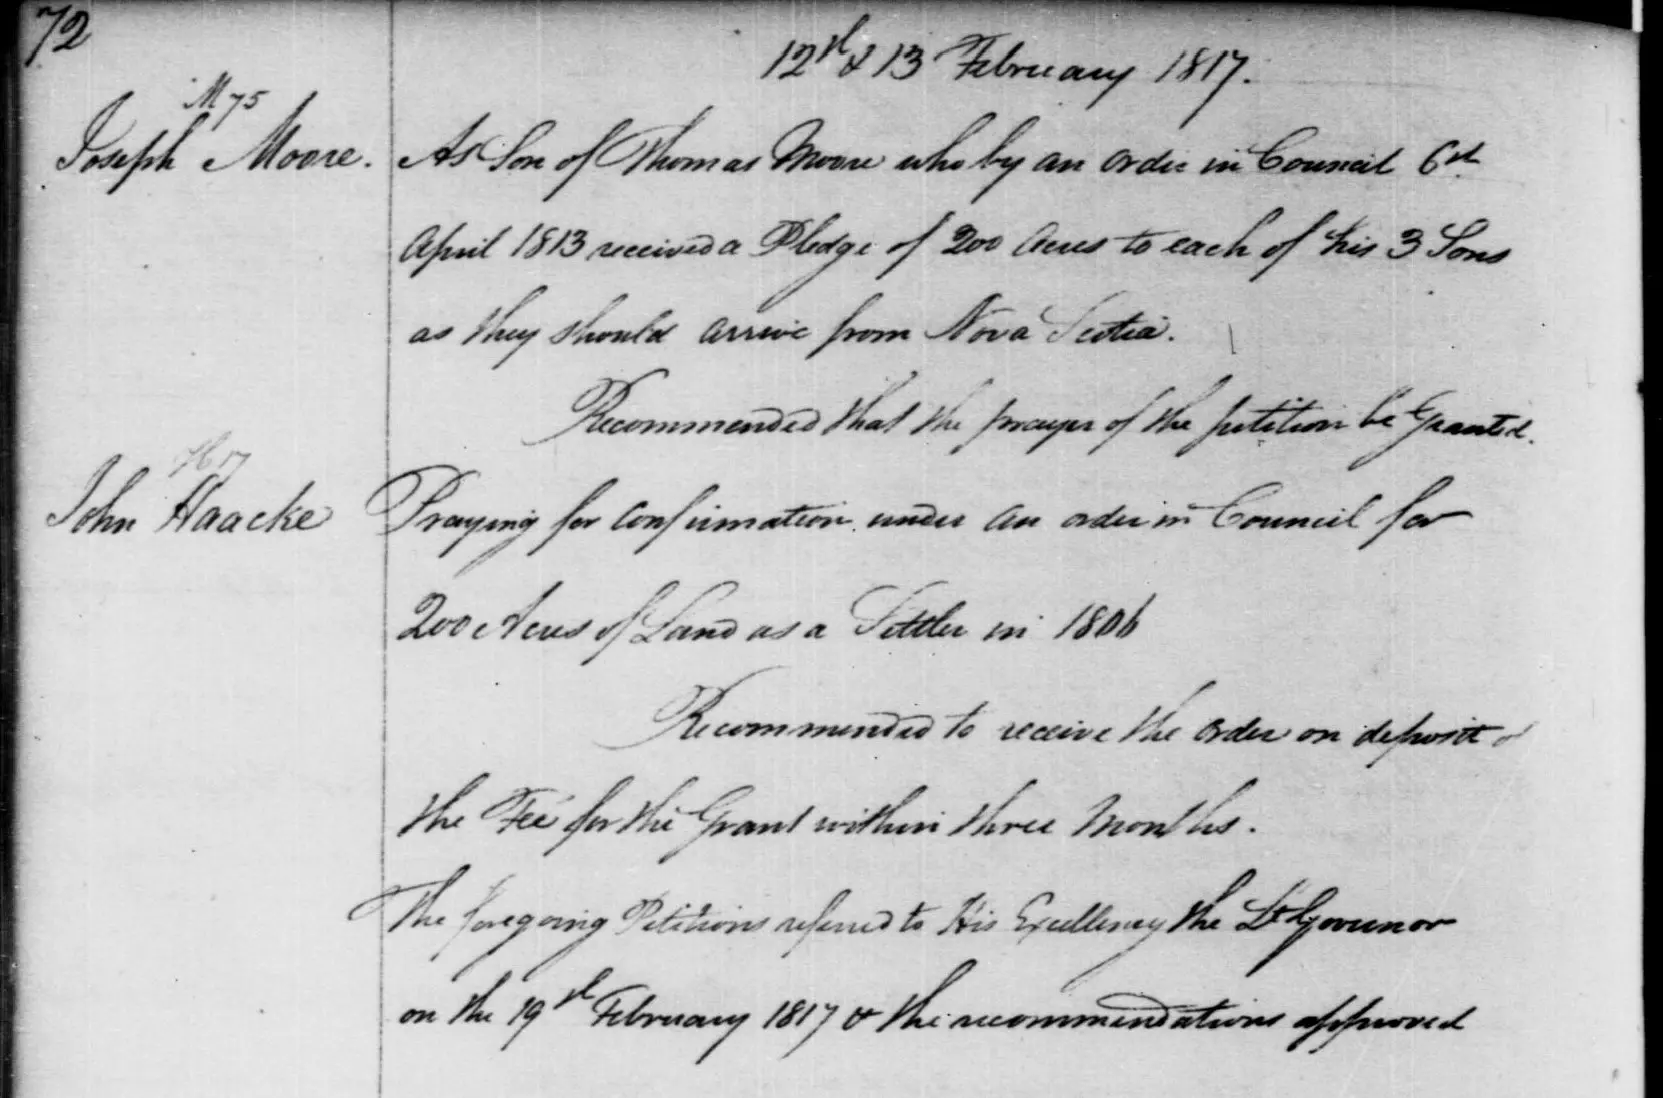 72
12th & 13 February 1817.
M 75
Joseph Moore. As Son of Thomas Moore who by an order in Council 6th
April 1813 received a Pledge of 200 Acres to each of his 3 Sons
as they should arrive from Nova Scotia.
Recommended that the prayer of the petition be Granted.
H 17
John Haacke Praying for confirmation under an order in Council for
200 Acres of Land as a Settler in 1806
Recommended to receive the order on deposit of
the Fee for the Grant within three Months.
The foregoing Petitions referred to His Excellency the Lt Governor
on the 19th February 1817 & the recommendations approved